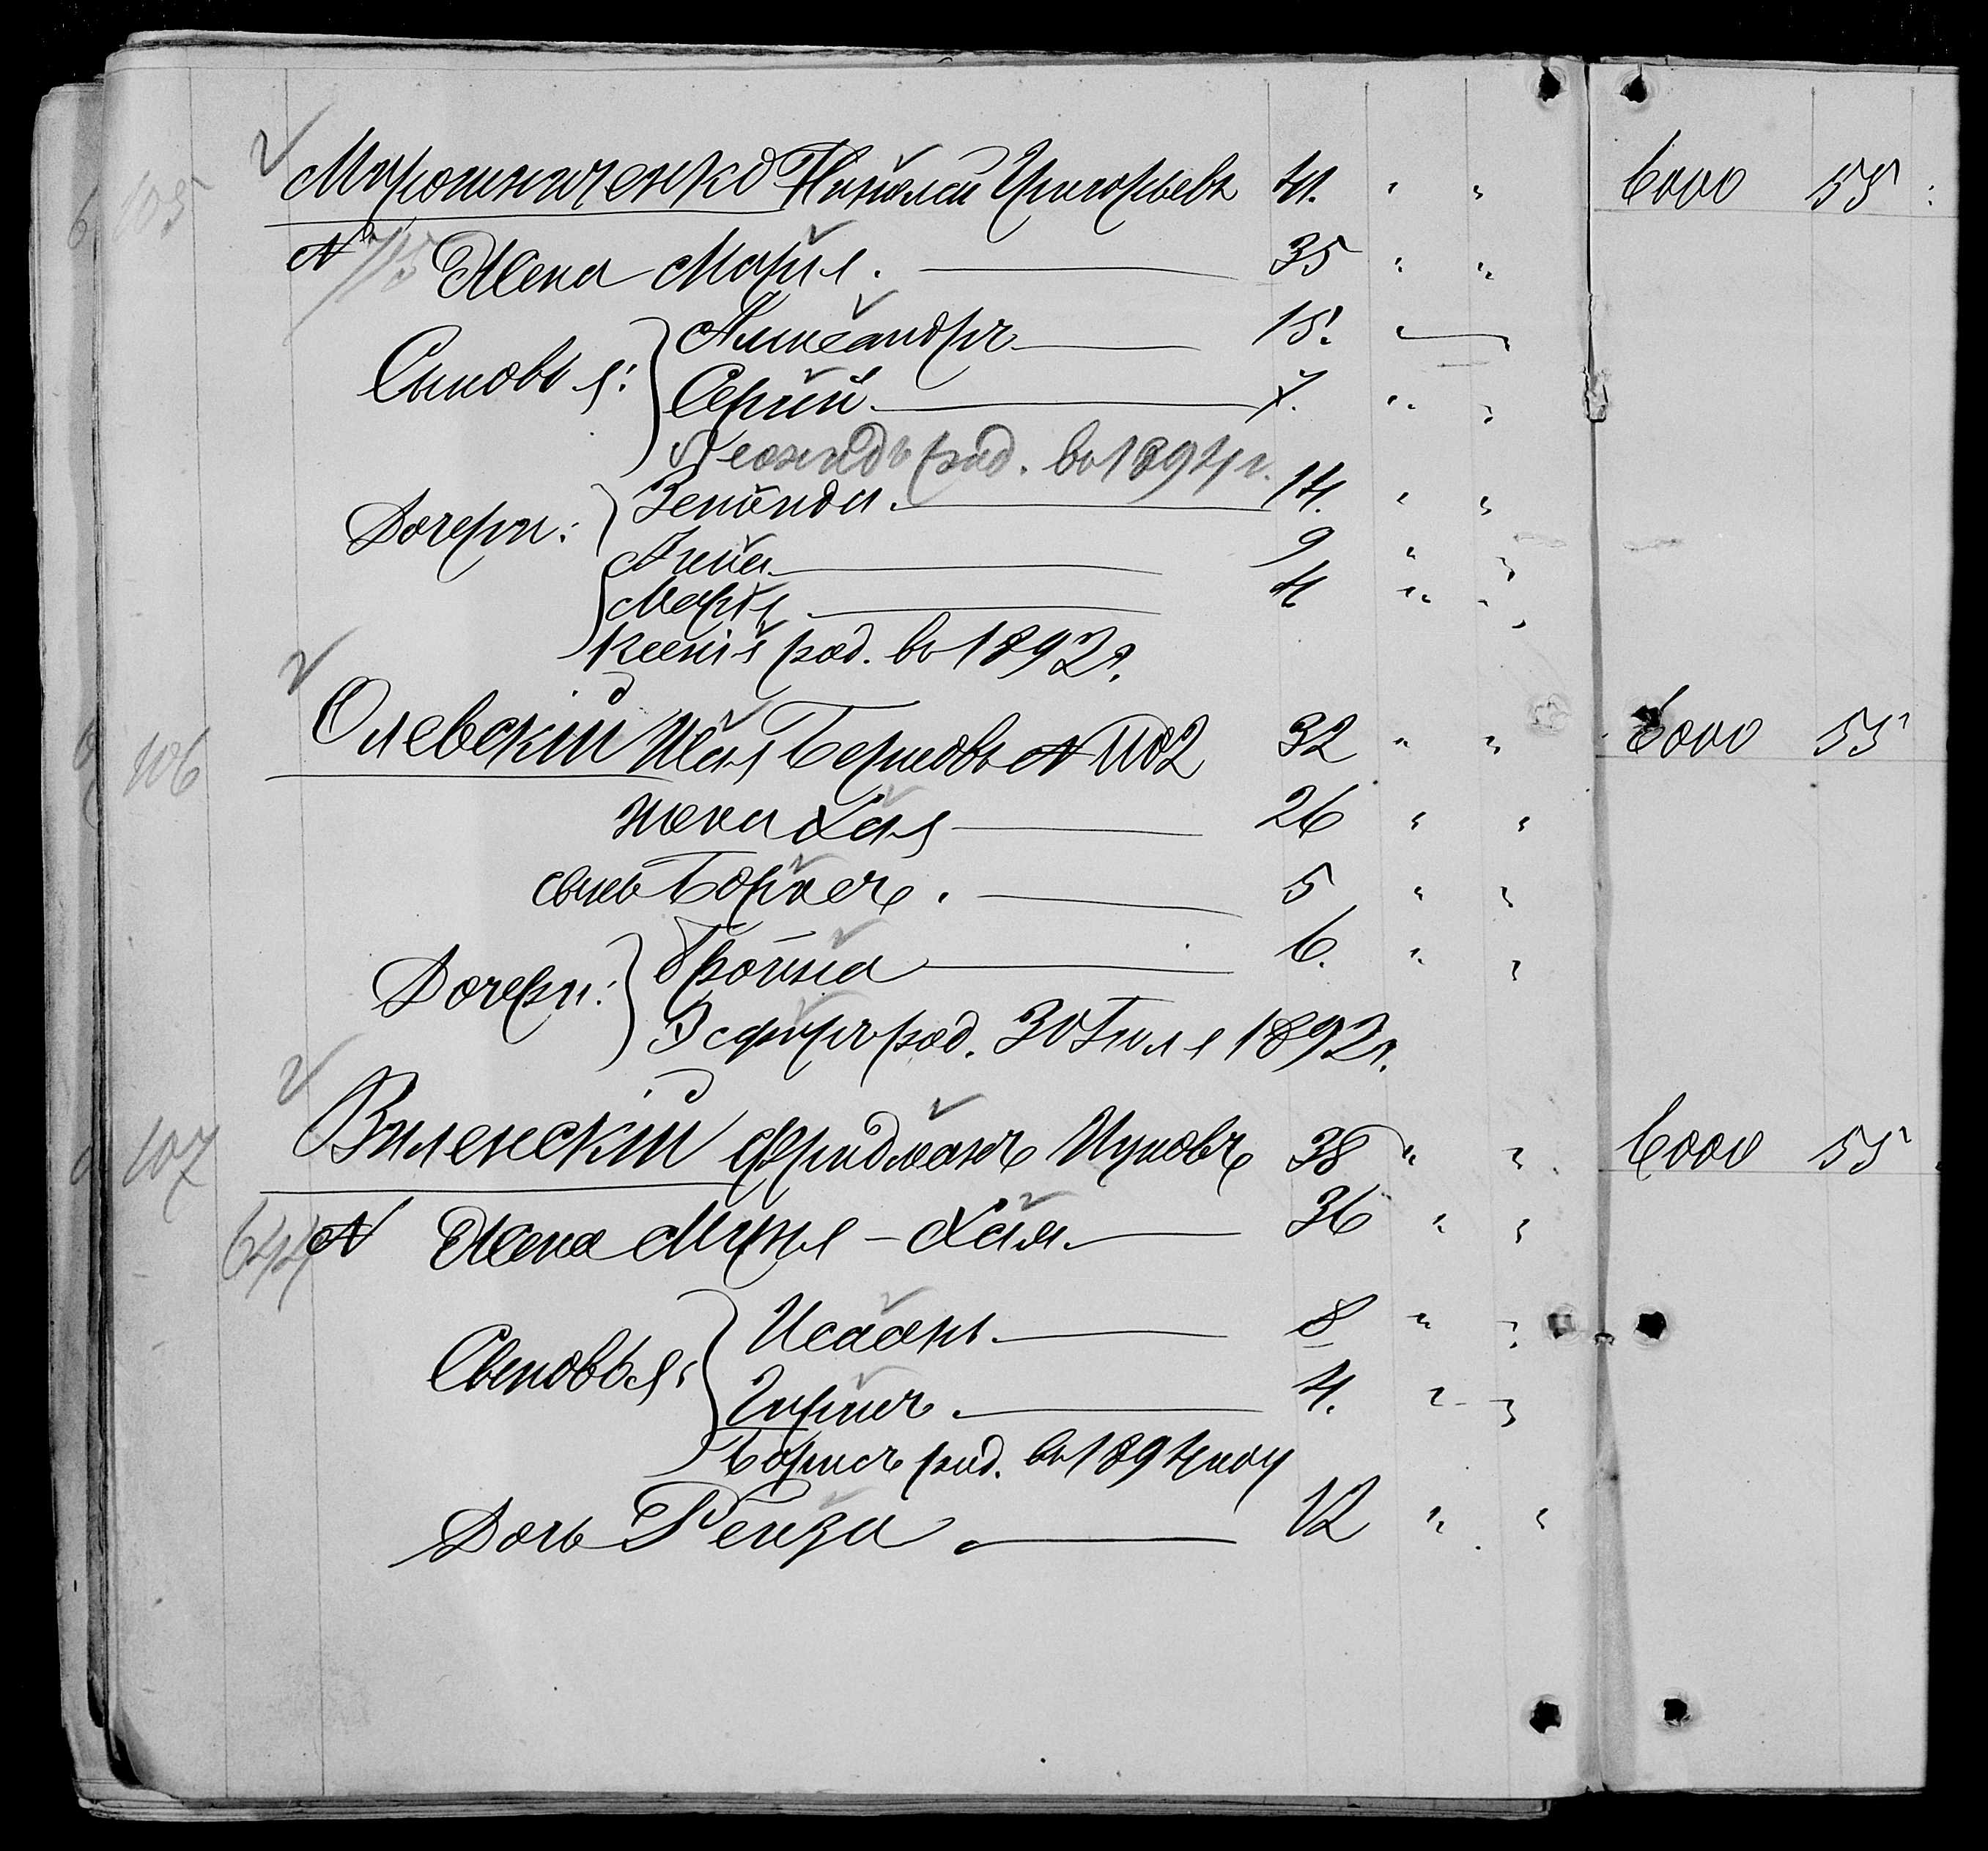 105 Мирошниченко Николай Григорьевъ 41. " " 6000 55
№ 715 Жена Марія. 35 " "
Сыновья: Александръ 15.
Сергій 7. " "
Леонидъ род. въ 1894 г.
Дочери: Зенаида 14. " "
Анна 9 " "
Марія 4 " "
Ксенія род. въ 1892 г.
106 Олевскій Шая Берковъ № 1102 32 " " 6000 55
жена Хая 26 " "
сынъ Борухъ. 5 " "
Дочери: Бройна 6. " "
Эсфирь род. 30 Іюля 1892 г.
107 Виленскій Фридманъ Ицковъ 38 " " 6000 55
644 № Жена Мирья - Хая 36 " "
Сыновья: Исаакъ 8 " "
Гиршъ 4. " "
Борисъ род. въ 1894 году
Дочь Рейза 12 " "